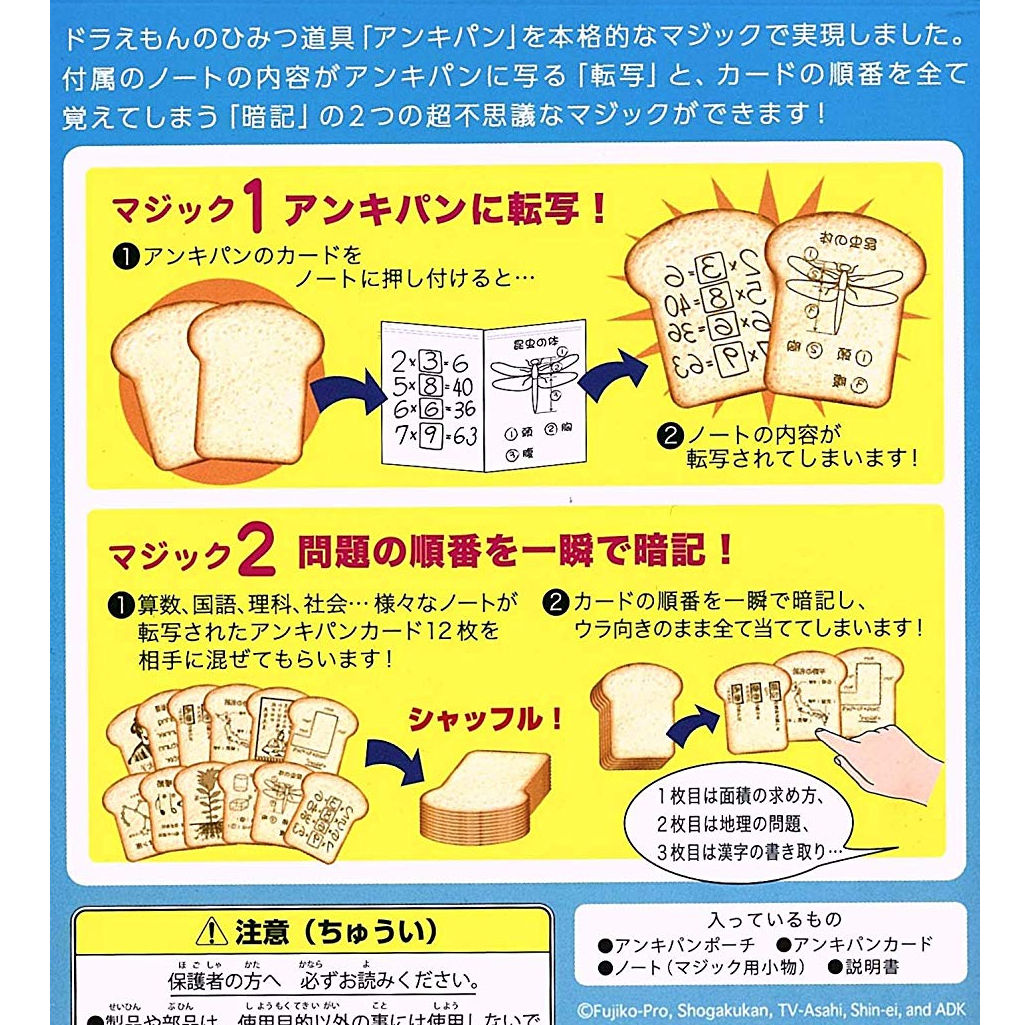 ドラえもんのひみつ道具「アンキパン」を本格的なマジックで実現しました。
付属のノートの内容がアンキパンに写る「転写」と、カードの順番を全て
覚えてしまう「暗記」の2つの超不思議なマジックができます!
マジック1 アンキパンに転写!
❶アンキパンのカードを
ノートに押し付けると…
2×3=6
5×8=40
6×6=36
7×9=63
昆虫の体
①
②
③
①頭 ②胸
③腹
2×3=6
5×8=40
6×6=36
7×9=63
昆虫の体
①頭 ②胸
③腹
❷ノートの内容が
転写されてしまいます!
マジック2 問題の順番を一瞬で暗記!
❶算数、国語、理科、社会…様々なノートが
転写されたアンキパンカード12枚を
相手に混ぜてもらいます!
シャッフル!
❷カードの順番を一瞬で暗記し、
ウラ向きのまま全て当ててしまいます!
1枚目は面積の求め方、
2枚目は地理の問題、
3枚目は漢字の書き取り…
注意(ちゅうい)
保護者の方へ 必ずお読みください。
●製品や部品は、使用目的以外の事には使用しないで
入っているもの
●アンキパンポーチ ●アンキパンカード
●ノート(マジック用小物) ●説明書
©Fujiko-Pro, Shogakukan, TV-Asahi, Shin-ei, and ADK